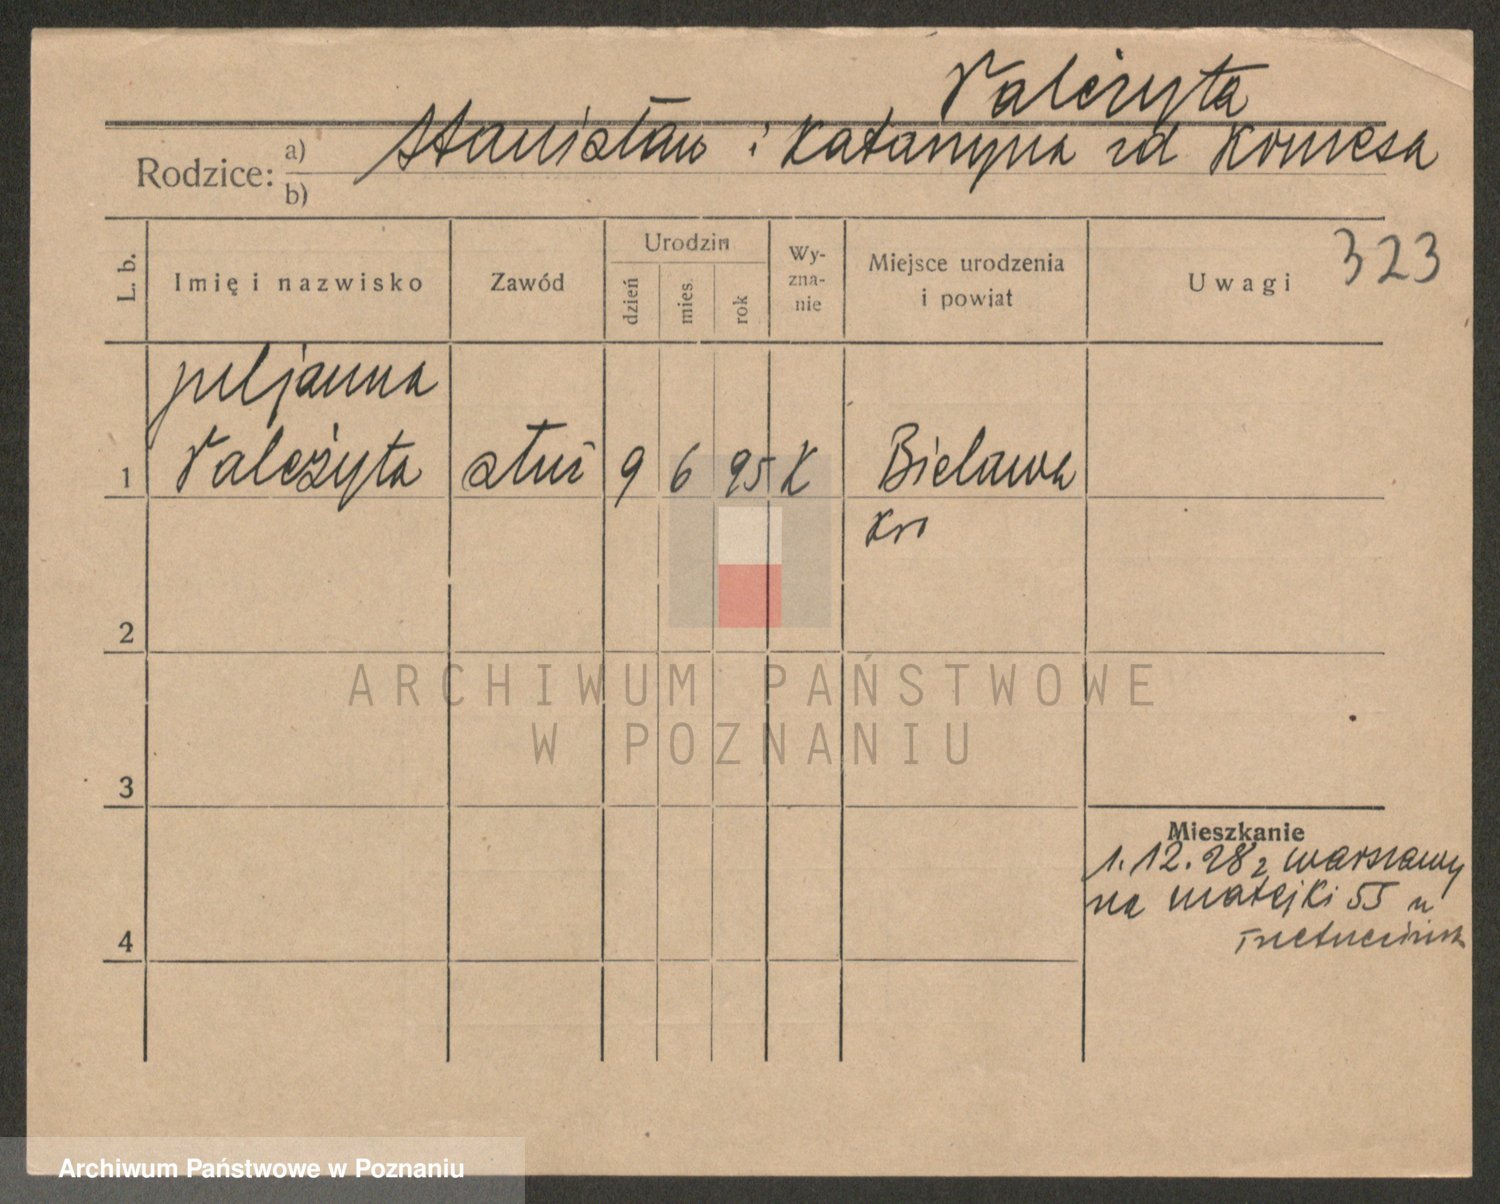 Vależyta
Rodzice: a) b) Stanisław i Katarzyna zd Komesa
323
L. b.
Imię i nazwisko
Zawód
Urodzin
dzień
mies.
rok
Wy-
zna-
nie
Miejsce urodzenia
i powiat
Uwagi
Juljanna
1 Vależyta służ 9 6 95 K Bielawa
2
3
4
Mieszkanie
1.12.28 z Warszawy
na Matejki 55 u
ARCHIWUM PAŃSTWOWE
W POZNANIU
Archiwum Państwowe w Poznaniu